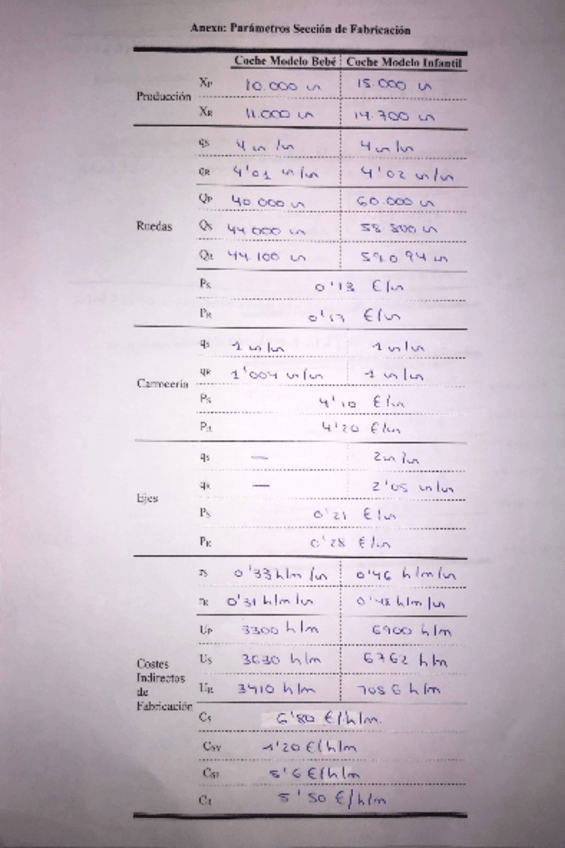 Anexo: Parámetros Sección de Fabricación
Coche Modelo Bebé Coche Modelo Infantil
Producción
XP 10.000 u 15.000 u
XR 11.000 u 14.700 u
Ruedas
qS 4 u/u 4 u/u
qR 4'01 u/u 4'02 u/u
QP 40.000 u 60.000 u
QS 44.000 u 58.800 u
QR 44.100 u 59.094 u
PS 0'13 €/u
PR €/u
Carrocería
qS 1 u/u 1 u/u
qR 1'004 u/u 1 u/u
PS 4'10 €/u
PR 4'20 €/u
Ejes
qS — 2 u/u
qR — 2'05 u/u
PS 0'21 €/u
PR 0'28 €/u
Costes Indirectos de Fabricación
τS 0'33 h/m/u 0'46 h/m/u
τR 0'31 h/m/u 0'48 h/m/u
UP 3300 h/m 6900 h/m
US 3630 h/m 6762 h/m
UR 3410 h/m 7056 h/m
CS 6'80 €/h/m
CSV 1'20 €/h/m
CSF 5'6 €/h/m
5'50 €/h/m